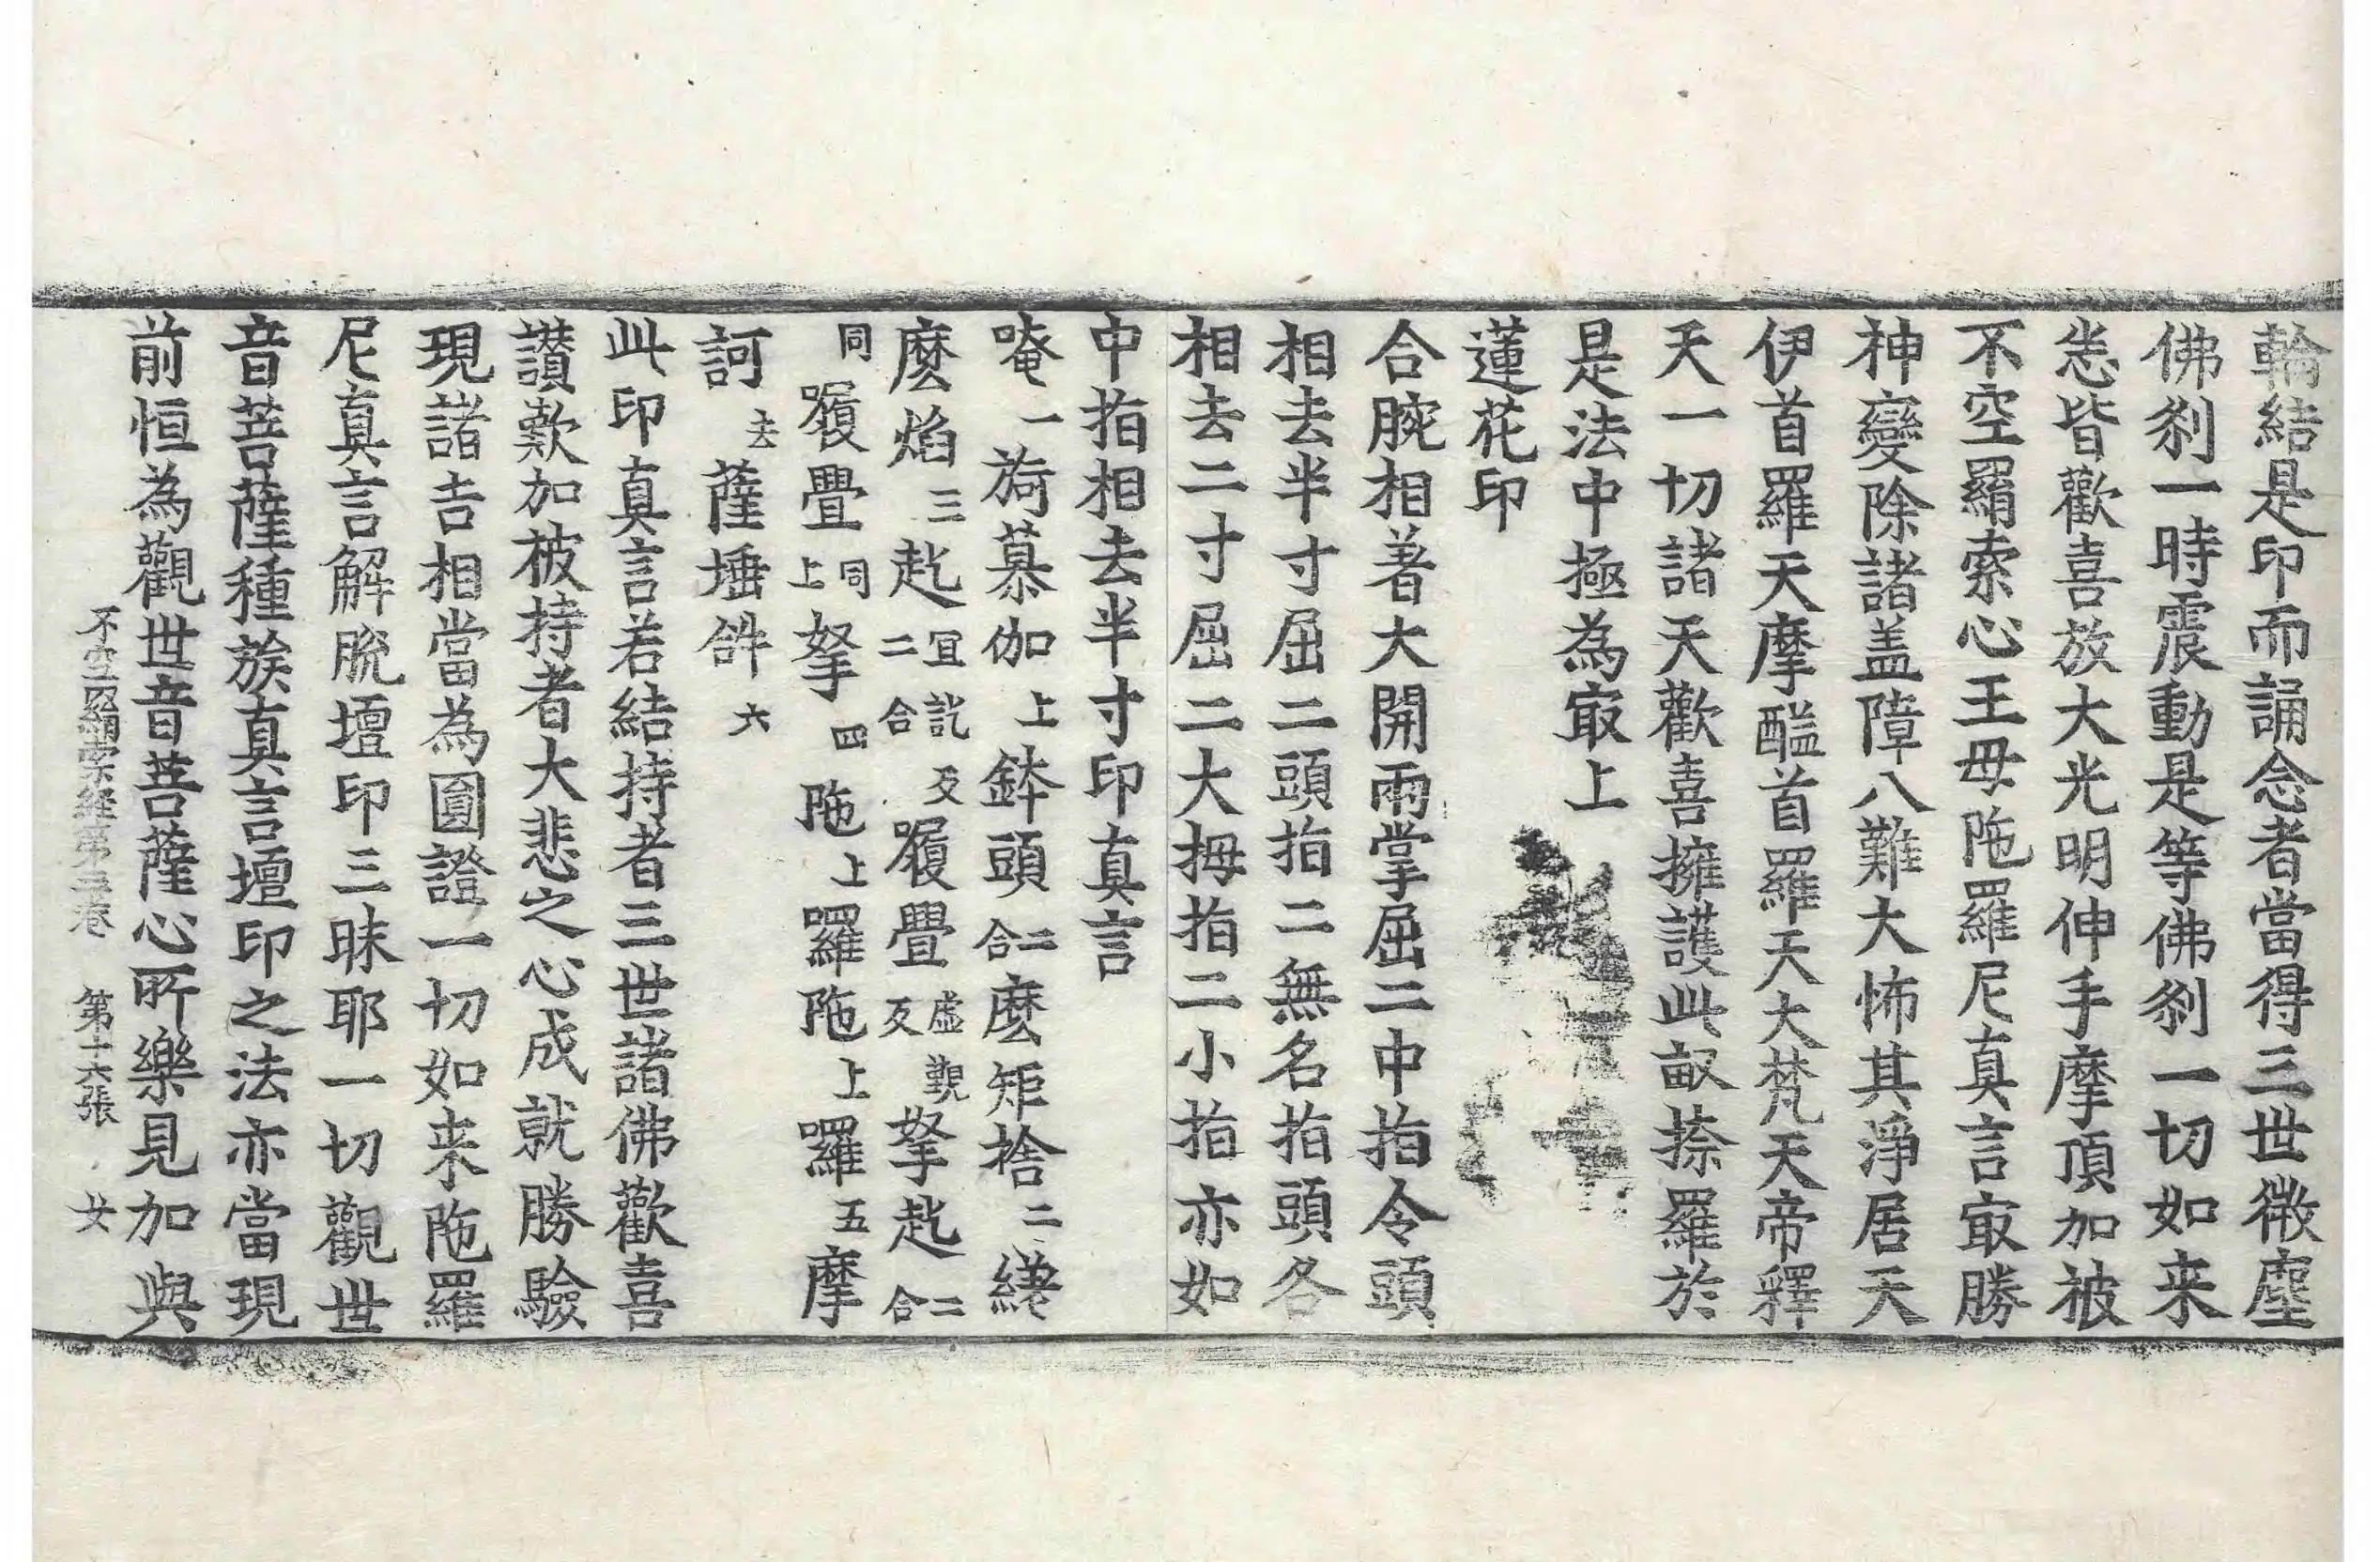 輪結是印而誦念者當得三世微塵
佛剎一時震動是等佛剎一切如来
悉皆歡喜放大光明伸手摩頂加被
不空羂索心王母陁羅尼真言㝡勝
神變除諸盖障八難大怖其淨居天
伊首羅天摩醯首羅天大梵天帝釋
天一切諸天歡喜擁護此畝捺羅於
是法中極為㝡上
蓮花印
合腕相著大開兩掌屈二中指令頭
相去半寸屈二頭指二無名指頭各
相去二寸屈二大拇指二小指亦如
中指相去半寸印真言
唵一旖慕伽上鉢頭二合麼矩捨二縒
麼焰三䞘冝訖反二合履疊虛觀反拏䞘二合
同履疊同上拏四陁上囉陁上囉五摩
訶去薩埵𤙖六
此印真言若結持者三世諸佛歡喜
讃歎加被持者大悲之心成就勝驗
現諸吉相當為圓證一切如来陁羅
尼真言解脫壇印三昧耶一切觀世
音菩薩種族真言壇印之法亦當現
前恒為觀世音菩薩心所樂見加與
不空羂索經第三卷 第十六張 女